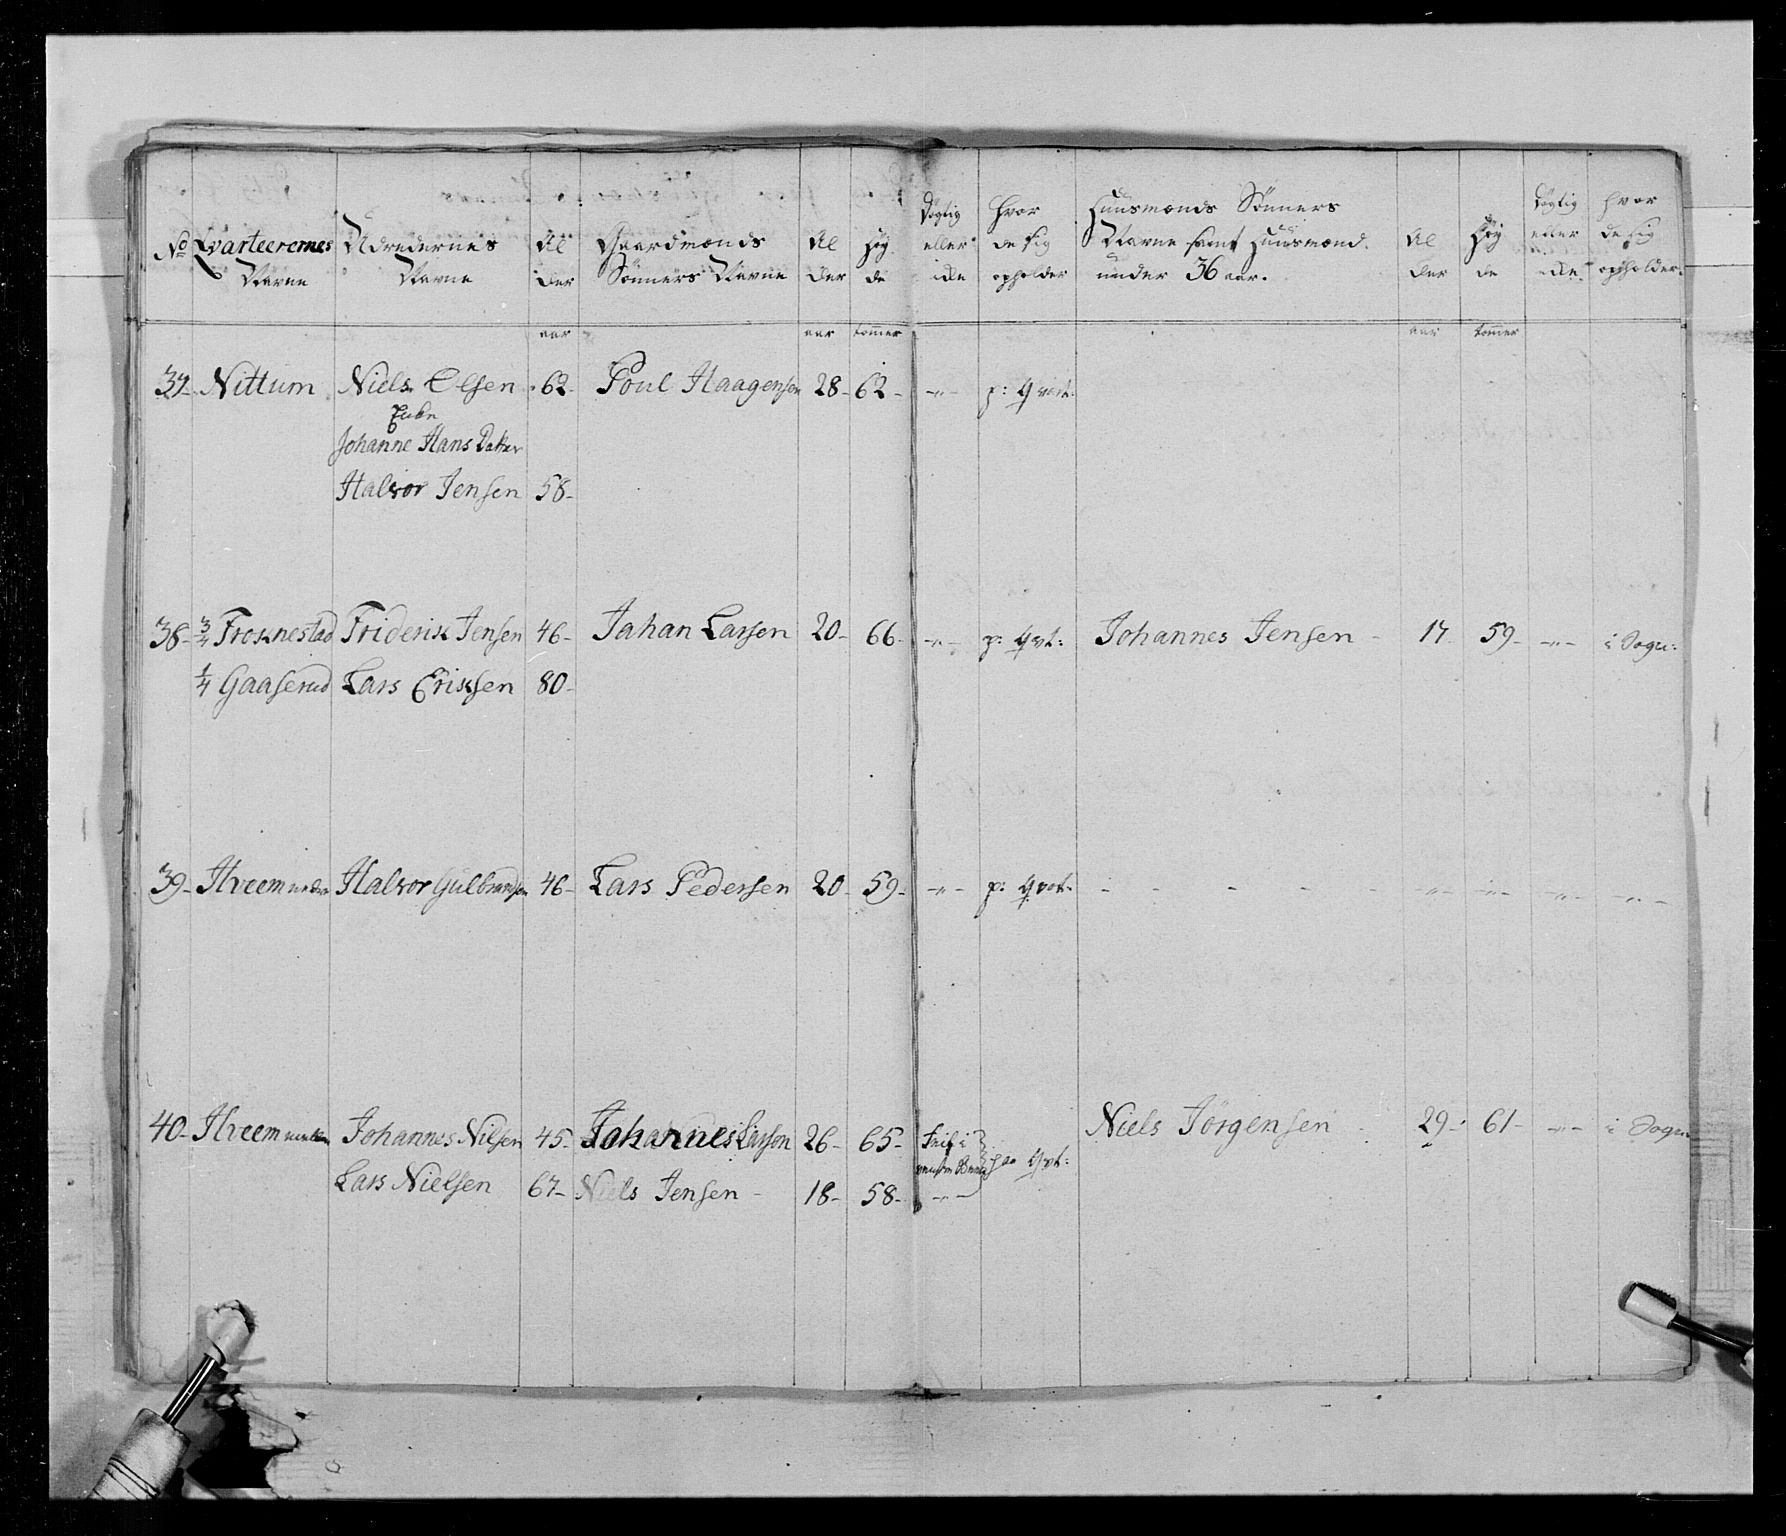 No Qvarteerernes Navne | Udredernes Navne | Al der | Gaardmænds Sönners Navne | Al der | Høy de | Dygtig eller ikke | Hvor de sig opholder | Huusmænds Sönners Navne samt Huusmænd under 36 aar. | Al der | Høy de | Dygtig eller ikke | Hvor de sig opholder.
aar | aar | tommer | aar | tommer
37- Nittum | Niels Olsen | 62- | Poul Haagensen | 28- | 62- | -"- | p: Qvart:
Enke
Johanne Hans Datter
Halvor Jensen | 58-
38- 3/4 Frosnestad | Friderik Jensen | 46- | Jahan Larsen | 20- | 66- | -"- | p: Qvt: | Johannes Jensen - | 17 | 59- | -"- | i Sogn:
1/4 Gaaserud | Lars Eriksen | 80-
39- Hveem nedre | Halvor Gulbransen | 46- | Lars Pedersen | 20- | 59- | -"- | p: Qvt- | - - - - - | -"- | -"- | -"- | -"-
40- Hveem | Johannes Nilsen | 45- | Johannes Larson | 26- | 65- | Feil i venstre Been | paa Qvt: | Niels Jörgensen - | 29- | 61- | -"- | i Sogn
Lars Nielsen | 67- | Niels Jensen - | 18- | 58- | -"-